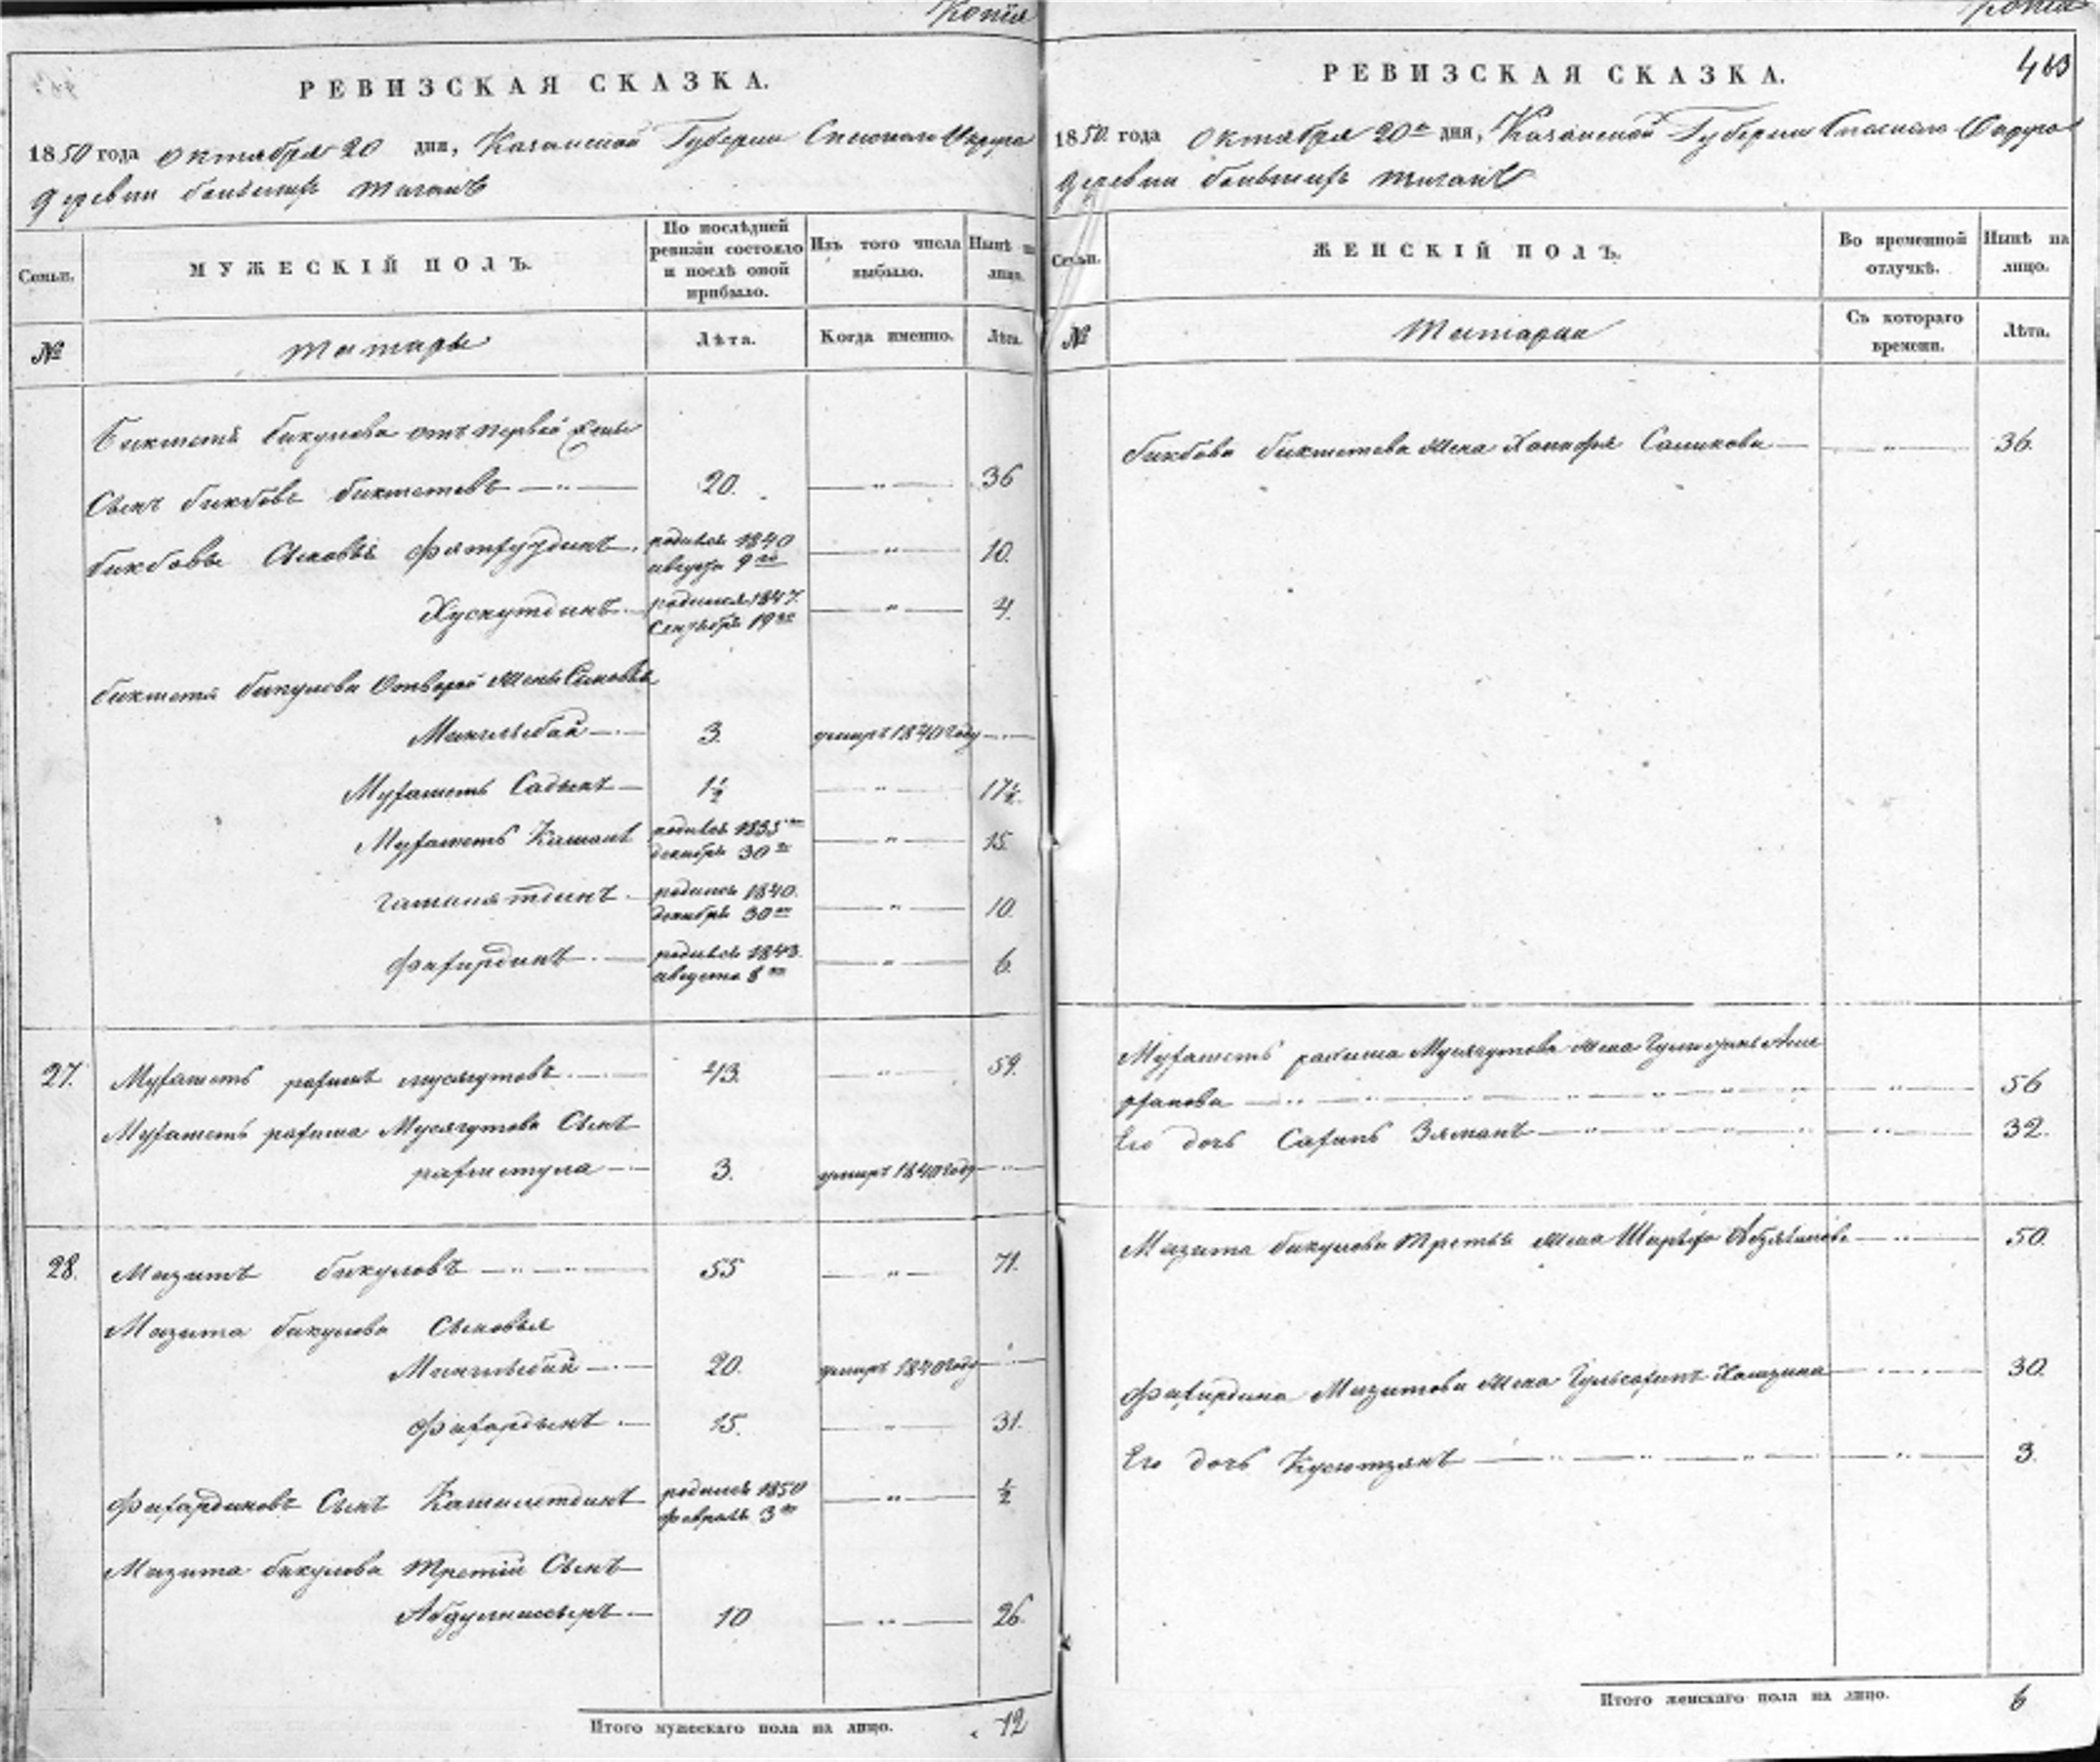 Копія
РЕВИЗСКАЯ СКАЗКА.
1850 года октября 20 дня, Казанской Губерніи Спаскаго Округа
деревни большихъ тиганъ
Семьи.
МУЖЕСКІЙ ПОЛЪ.
По послѣдней ревизіи состояло и послѣ оной прибыло.
Изъ того числа выбыло.
Нынѣ на лицо.
№
татары
Лѣта.
Когда именно.
Лѣта.
Бикметя бикулова отъ первой жены
Сынъ бикбовъ бикметевъ 20. " 36
бикбовы Сыновья Фятхудинъ родился 1840 августа 9го " 10.
Хуснутдинъ родился 1847. Сентября 19го " 4.
бикметя бикулова Отвторой жены Сыновья
Минлибай 3. умиръ 1840 году
Мухаметь Садыкъ 1½ " 17½.
Мухаметь Камалъ родился 1835го декабря 30го " 15.
родился 1840. декабря 30го " 10.
Фахирдинъ родился 1843. августа 8го " 6.
27. Мухаметь рахимъ мусягутовъ 43. " 59.
Мухаметь рахима Мусягутова Сынъ
рахметула 3. умиръ 1840 году
28. Мазитъ бикуловъ 55 " 71.
Мазита бикулова Сыновья
Минлибай 20. умиръ 1840 году
Фахардынъ 15. " 31.
Фахардиновъ Сынъ Камалетдинъ родился 1850 февраля 3го " ½
Мазита бикулова третій Сынъ
10 " 26.
Итого мужескаго пола на лицо. 12
Копія
403
РЕВИЗСКАЯ СКАЗКА.
1850 года октября 20го дня, Казанской Губерніи Спаскаго Округа
деревни большихъ тиганъ
Семьи.
ЖЕНСКІЙ ПОЛЪ.
Во временной отлучкѣ.
Нынѣ на лицо.
№
Татарки
Съ котораго времени.
Лѣта.
бикбова бикметева жена Саликова " 36.
Мухаметь рахима Мусягутова жена
56
Его дочь Сахипъ Зяманъ 32.
Мазита бикулова третья жена 50.
Фахирдина Мазитова жена 30.
Его дочь 3.
Итого женскаго пола на лицо. 6